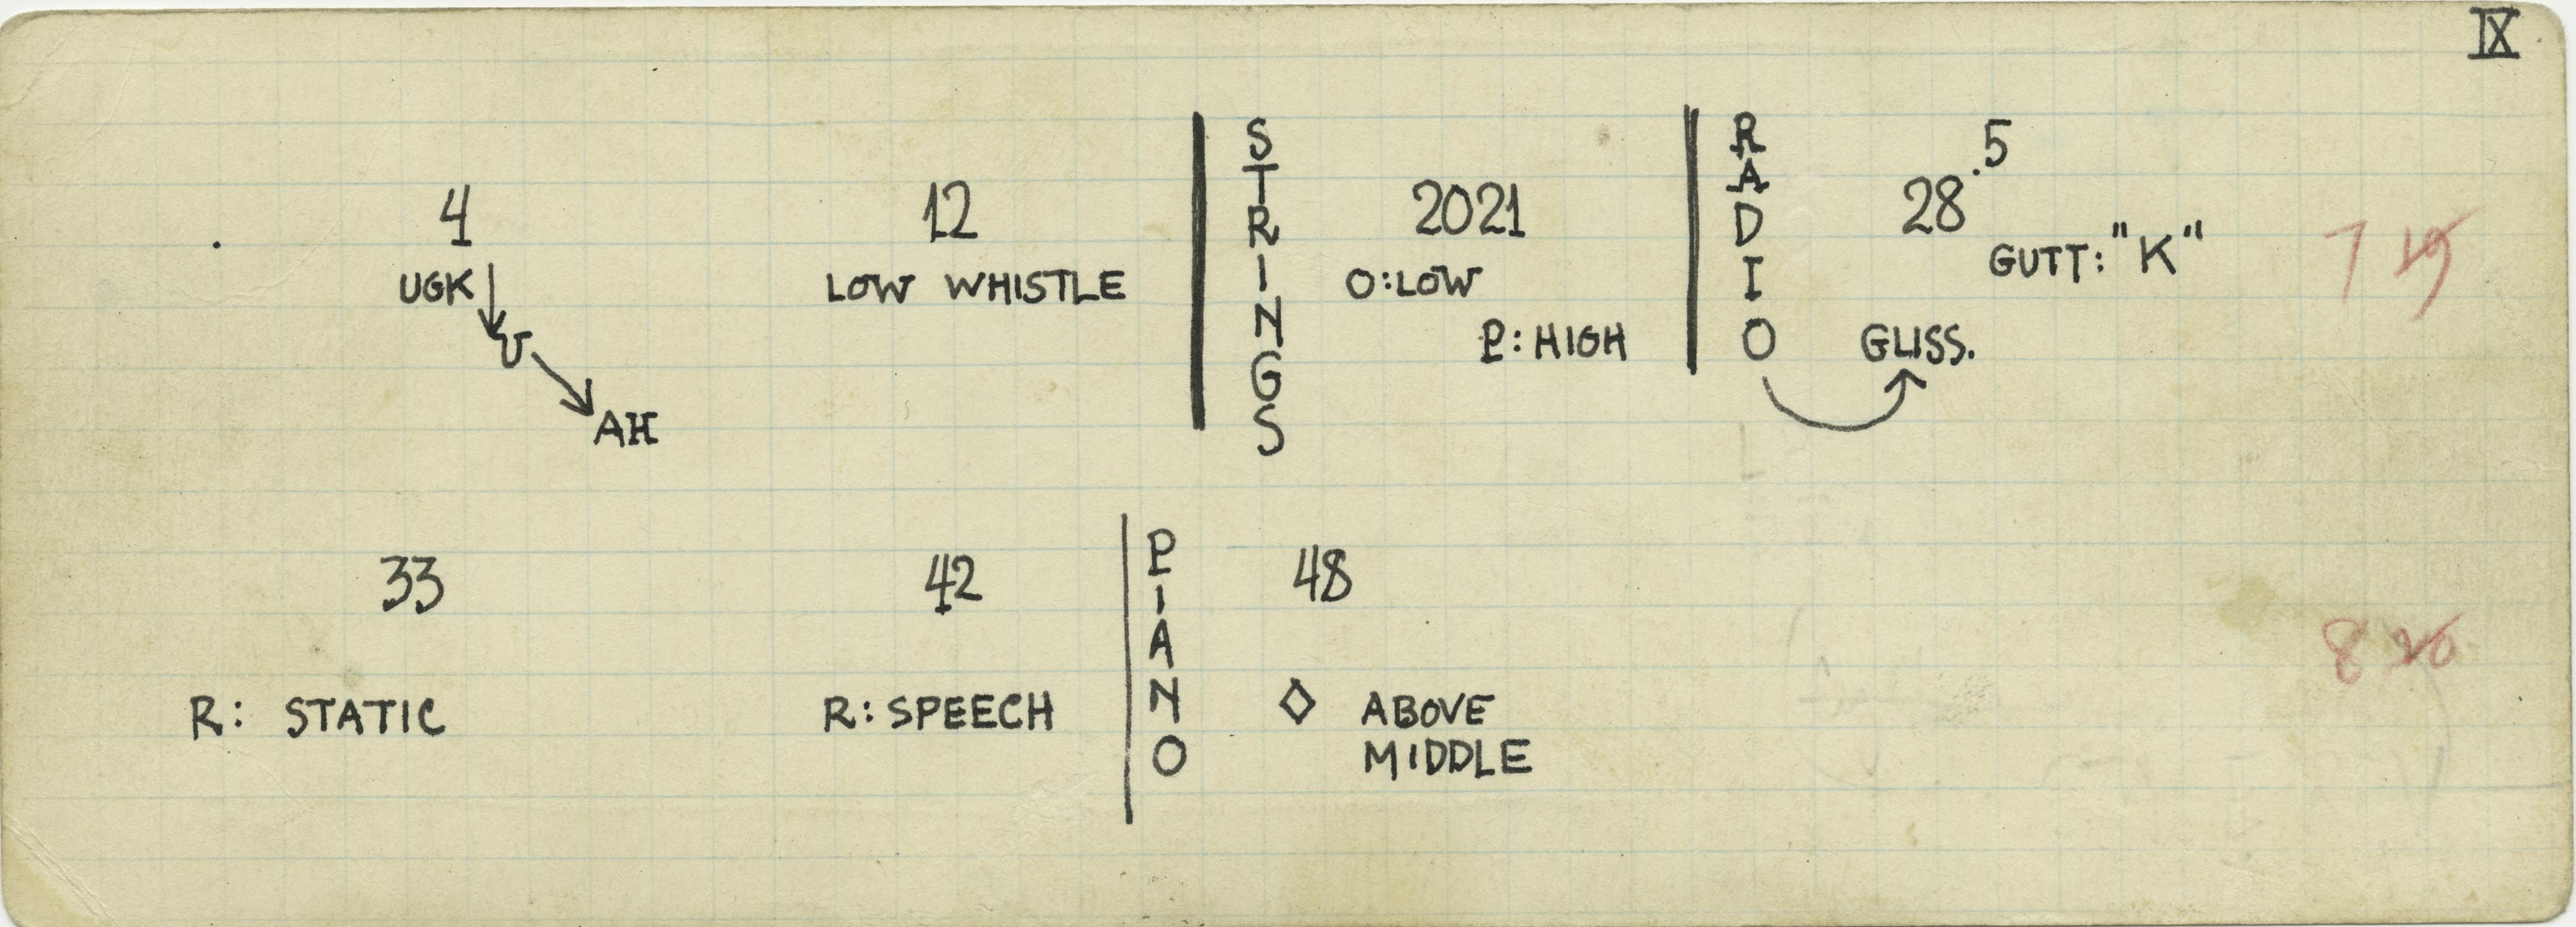 IX
4
UGK
U
AH
12
LOW WHISTLE
STRINGS
2021
O:LOW
P:HIGH
RADIO
28.5
GUTT: "K"
GLISS.
7 19
33
R: STATIC
42
R: SPEECH
PIANO
48
◇ ABOVE
MIDDLE
8 20